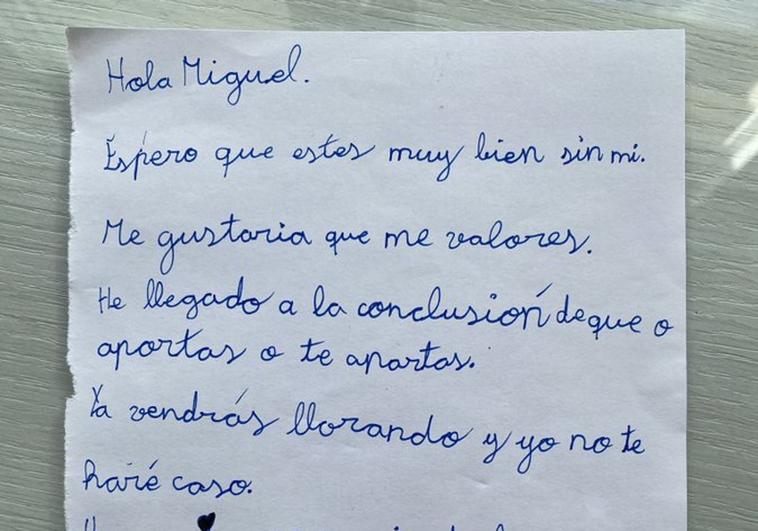 Hola Miguel.
Espero que estés muy bien sin mi.
Me gustaria que me valores.
He llegado a la conclusión de que o
aportas o te apartas.
Ya vendrás llorando y yo no te
haré caso.